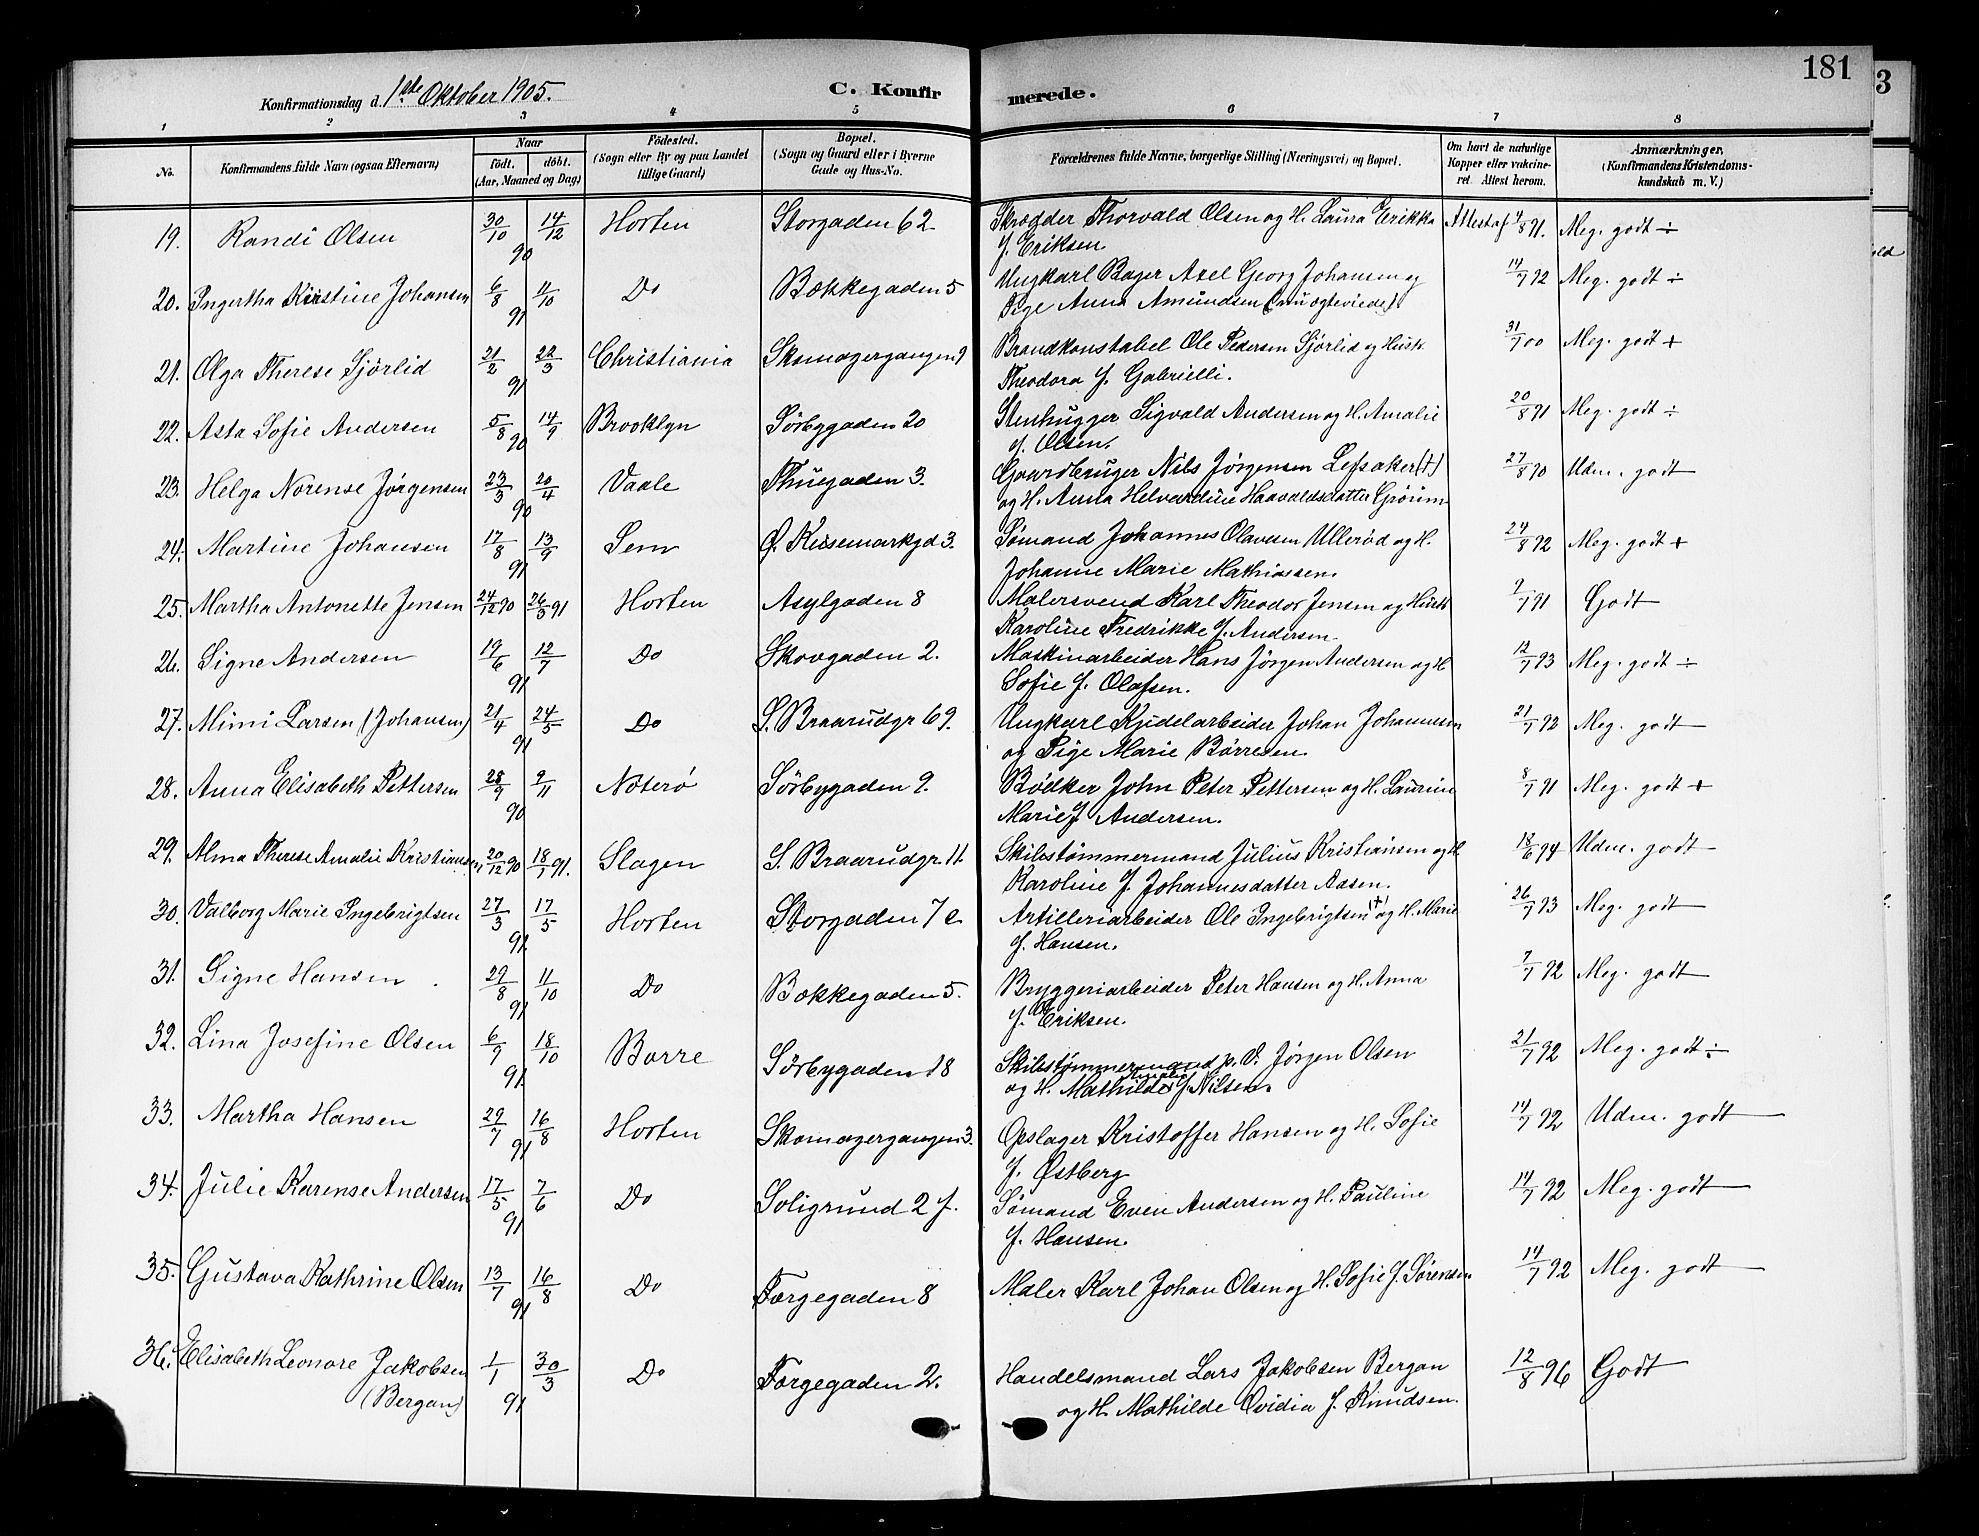 181
3
Konfirmationsdag d. 1ste Oktober 1905.
C. Konfirmerede.
1 2 3 4 5 6 7 8
No. Konfirmandens fulde Navn (ogsaa Efternavn) Naar født. døbt. (Aar, Maaned og Dag) Födested. (Sogn eller By og paa Landet tillige Gaard) Bopæl. (Sogn og Gaard eller i Byerne Gade og Hus-No. Forældrenes fulde Navne, borgerlige Stilling (Næringsvei) og Bopæl. Om havt de naturlige Kopper eller vaccineret. Attest herom. Anmærkninger, (Konfirmandens Kristendomskundskab m. V.)
19. Randi Olsen 30/10 90 14/12 Horten Storgaden 62 Skrædder Thorvald Olsen og H. Laura Erikka Attest af 4/8 91. Meg. godt ÷
f. Eriksen
20. Ingertha Kristine Johansen 6/8 91 11/10 Do Bækkegaden 5 Ungkarl Bager Axel Georg Johansen og 14/7 92 Meg. godt ÷
Pige Anna Amundsen (nu ægteviede)
21. Olga Therese Sjörlid 21/2 91 22/3 Christiania Skomagergangen 9 Brandkonstabel Ole Pedersen Sjörlid og Hust. 31/7 00 Meg. godt +
Theodora f. Gabrielli.
22. Asta Sofie Andersen 5/8 90 14/9 Brooklyn Sörbygaden 20 Stenhugger Sigvald Andersen og H. Amalie 20/8 91 Meg. godt ÷
f. Olsen.
23. Helga Norense Jørgensen 23/3 90 20/4 Vaale Thuegaden 3. Gaardbruger Nils Jørgensen Lefsaker (†) 27/8 90 Udm. godt
og H. Anna Helvardine Haavaldsdatter Grörim
24. Martine Johansen 17/8 91 13/9 Sem Ø. Keisemarkgd 3. Sømand Johannes Olavesen Ullerød og H. 24/8 92 Meg. godt +
Johanne Marie Mathiassen.
25. Martha Antonette Jensen 24/12 90 26/3 91 Horten Asylgaden 8 Malersvend Karl Theodor Jensen og Hust. 9/7 91 Godt
Karoline Fredrikke f. Andersen.
26. Signe Andersen 19/6 91 12/7 Do Skovgaden 2. Maskinarbeider Hans Jørgen Andersen og H 12/7 93 Meg. godt ÷
Sofie f. Olafsen.
27. Mimi Larsen (Johansen) 21/4 91 24/5 Do S. Braarudgr 69. Ungkarl Kjedelarbeider Johan Johannesen 21/7 92 Meg. godt
og Pige Marie Börresen.
28. Anna Elisabeth Pettersen 28/9 90 9/11 Nøterø Sörbygaden 9. Bødker John Peter Pettersen og H. Laurine 8/7 91 Meg. godt +
Marie f. Andersen.
29. Alma Therese Amalie Kristiansen, 20/12 90 18/1 91. Slagen S. Braarudgr. 11. Skibstømmermand Julius Kristiansen og H. 18/6 94 Udm. godt
Karoline f. Johannesdatter Aasen.
30. Valborg Marie Ingebrigtsen 27/3 91 17/5 Horten Storgaden 7 c Artilleriarbeider Ole Ingebrigtsen (†) og H. Marie 26/7 93 Meg. godt
f. Hansen.
31. Signe Hansen 29/8 91 11/10 Do Bækkegaden 5. Bryggeriarbeider Peter Hansen og H. Anna 7/7 92 Meg. godt
f. Eriksen.
32. Lina Josefine Olsen 6/9 91 18/10 Borre Sörbygaden 18 Skibstömmermand p. V. Jörgen Olsen 21/7 92 Meg. godt ÷
og H. Mathilde Amalie f. Nilsen.
33. Martha Hansen 29/7 91 16/8 Horten Skomagergangen 3. Opslager Kristoffer Hansen og H. Sofie 14/7 92 Udm. godt
f. Østberg
34. Julie Karense Andersen 17/5 91 7/6 Do Soligrund 2 f. Sømand Even Andersen og H. Pauline 14/7 92 Meg. godt
f. Hansen.
35. Gustava Kathrine Olsen 13/7 91 16/8 Do Færgegaden 8 Maler Karl Johan Olsen og H. Sofie f. Sørensen 14/7 92 Meg. godt
36. Elisabeth Leonore Jakobsen 1/1 91 30/3 Do Færgegaden 2. Handelsmand Lars Jakobsen Bergan 12/8 96 Godt
(Bergan) og H. Mathilde Ovidia f. Knudsen.